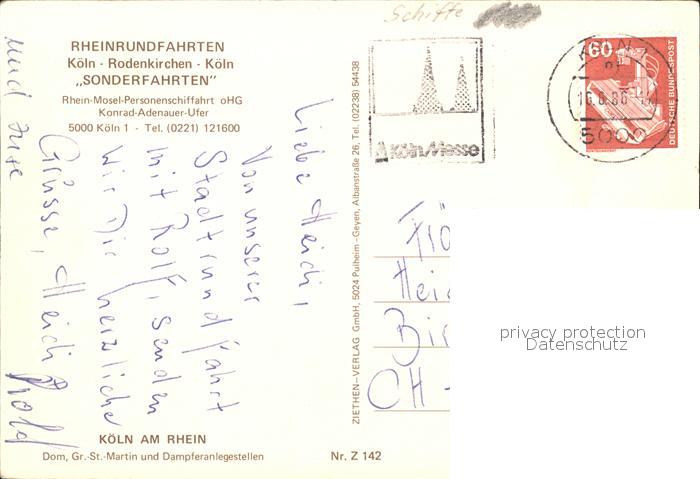 Schiffe
RHEINRUNDFAHRTEN
Köln - Rodenkirchen - Köln
„SONDERFAHRTEN"
Rhein-Mosel-Personenschiffahrt oHG
Konrad-Adenauer-Ufer
5000 Köln 1 - Tel. (0221) 121600
Liebe Heidi,
Von unserer
Stadtrundfahrt
mit Rolf, senden
wir Dir herzliche
Grüsse, Heidi
und
KÖLN AM RHEIN
Dom, Gr.-St.-Martin und Dampferanlegestellen
Nr. Z 142
ZIETHEN-VERLAG GmbH, 5024 Pulheim-Geyen, Albanstraße 26, Tel. (02238) 54438
KölnMesse
KÖLN 1
5000
60
DEUTSCHE BUNDESPOST
Hei
CH -
privacy protection
Datenschutz